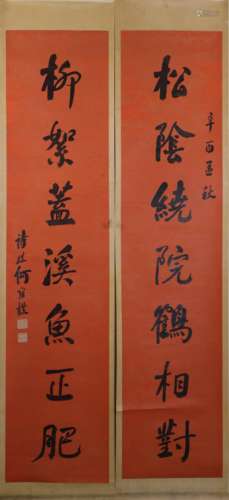 松陰繞院鶴相對
辛酉孟秋
柳絮蓋溪魚正肥
何維樸